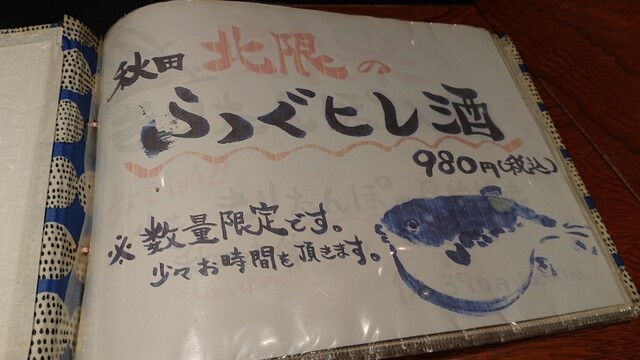 秋田 北限の
ふぐヒレ酒
980円(税込)
※数量限定です。
少々お時間を頂きます。